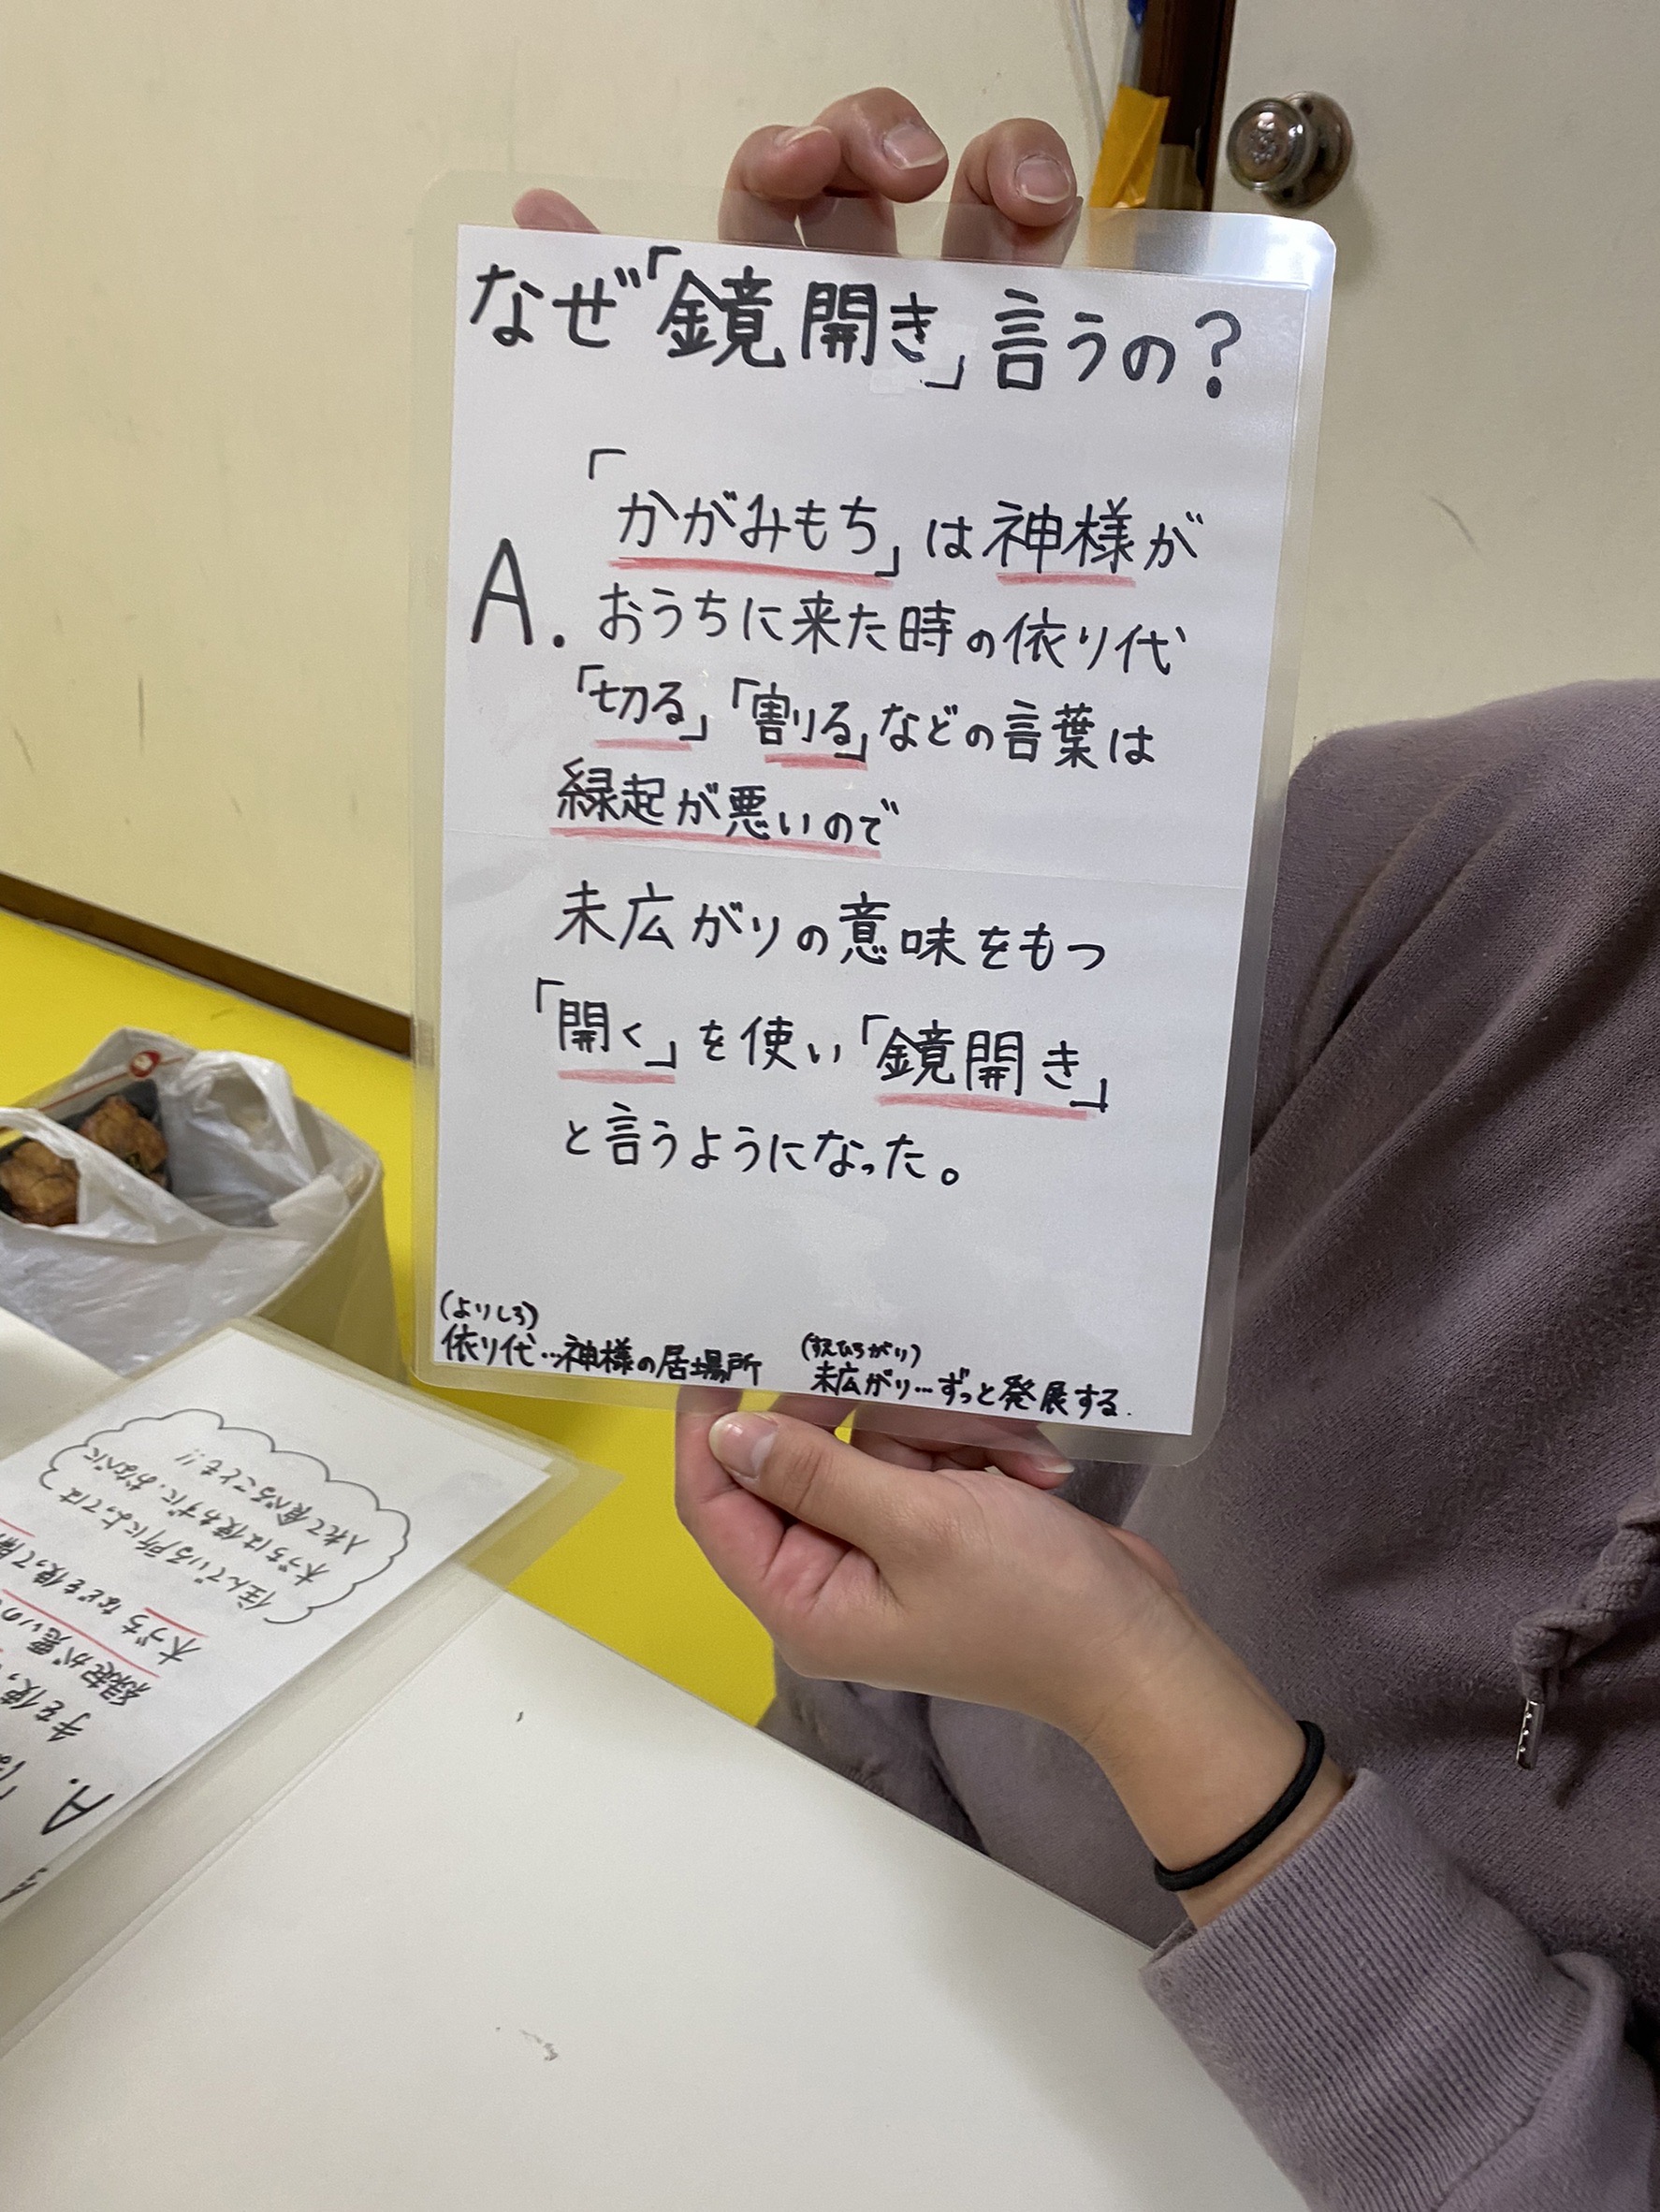 なぜ「鏡開き」言うの？
「かがみもち」は神様が
A. おうちに来た時の依り代
「切る」「割る」などの言葉は
縁起が悪いので
末広がりの意味をもつ
「開く」を使い「鏡開き」
と言うようになった。
(よりしろ)
依り代…神様の居場所
(すえひろがり)
末広がり…ずっと発展する.
A.
手を使
縁起が悪いの
木づち などを使って
住んでいる所によっては
木づちは使わずに、おなべに
入れて食べることも!!